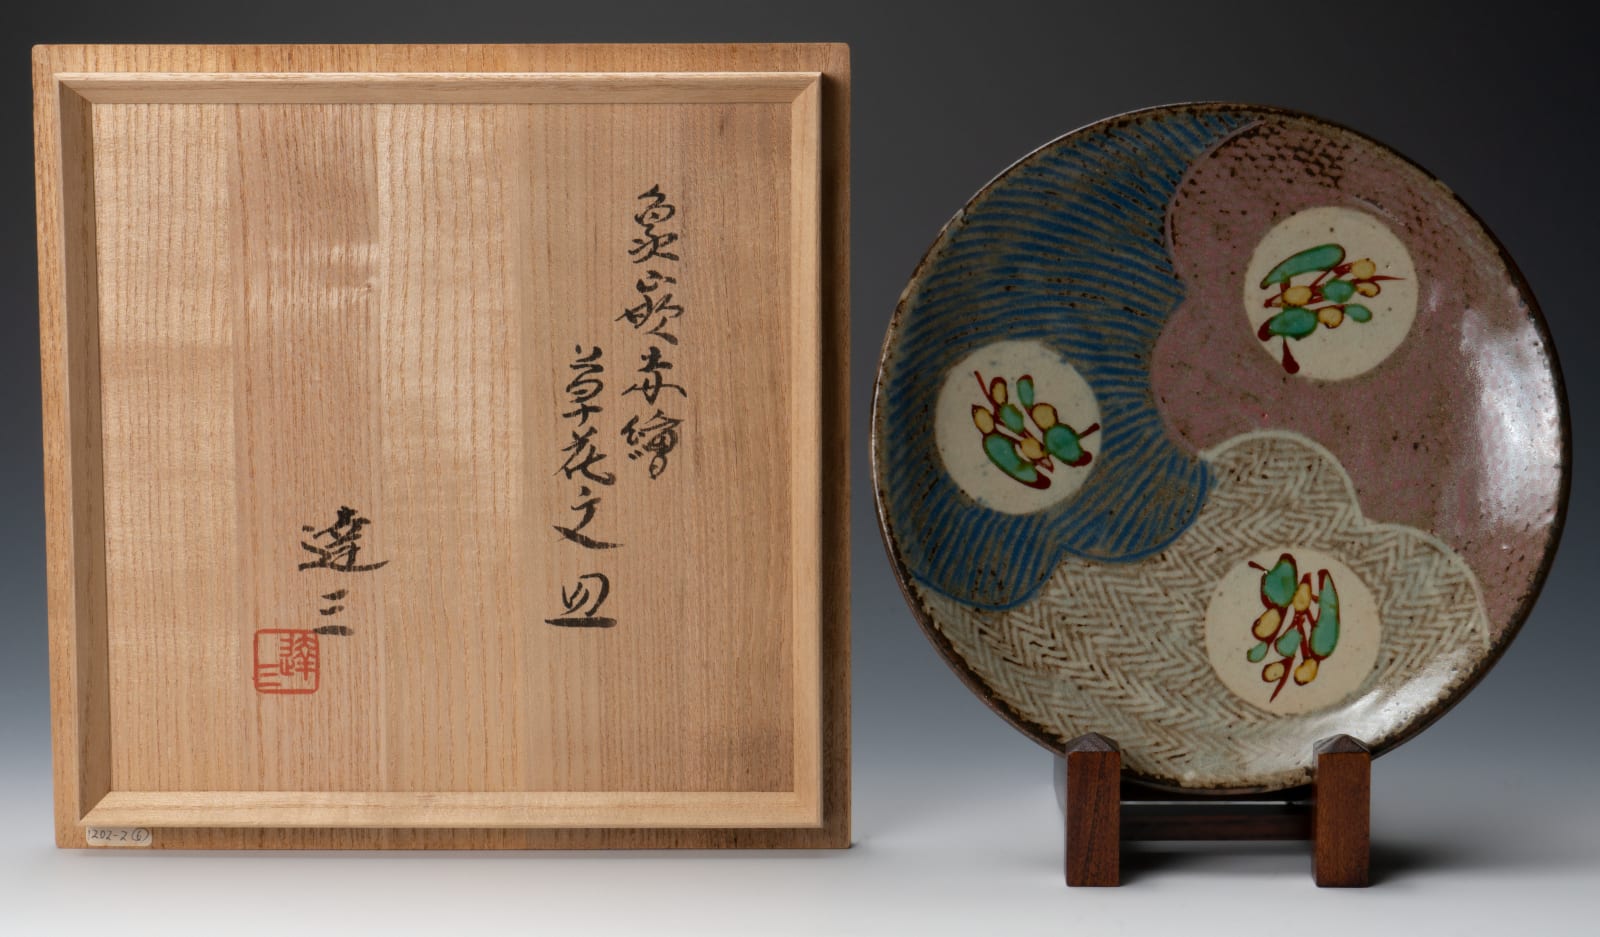 象嵌赤繪
草花文皿
達三
達三
1202-2⑥